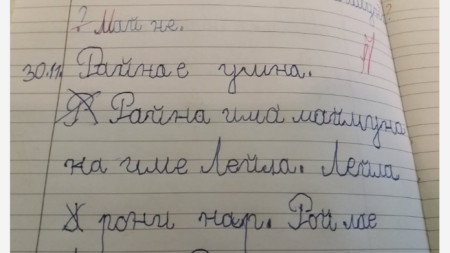 ? Май не.
30.11. Райна е умна.
Райна има маймуна
на име Лейла. Лейла
рони нар. Рой лае